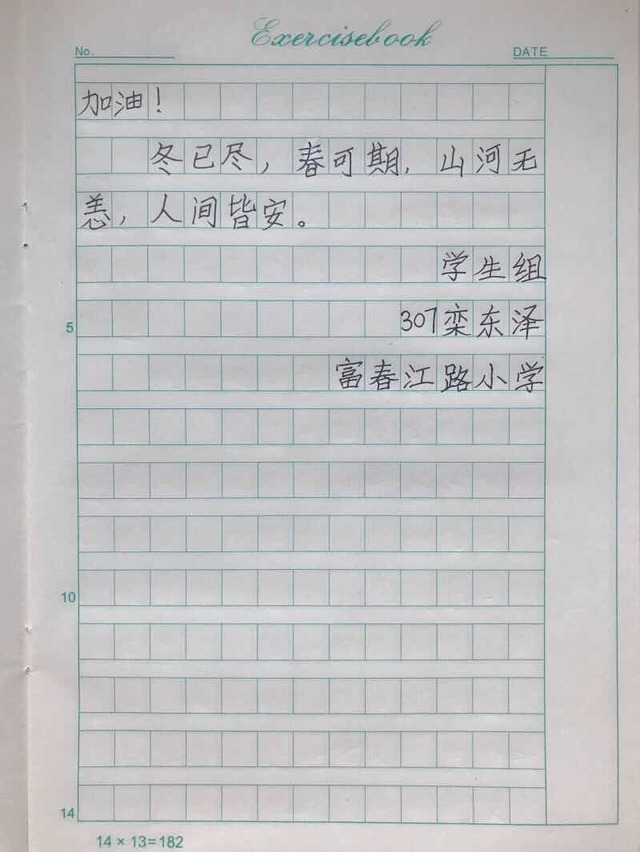 Exercisebook
No.
DATE
加油！
冬已尽，春可期，山河无
恙，人间皆安。
学生组
5 307栾东泽
富春江路小学
10
14
14 × 13=182